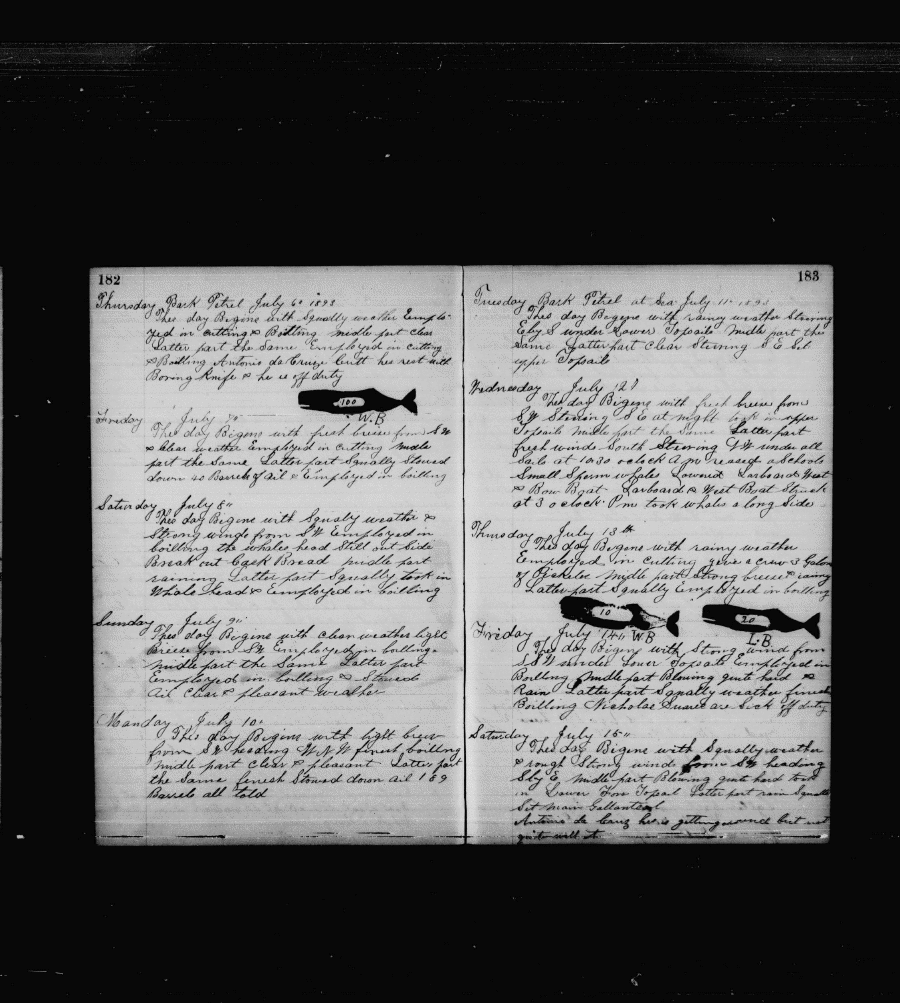 182
Thursday Bark Petrel July 6" 1893
Thes day Begins with Squally weather Emplo-
yed in cutting & Boilling midle part clear
Latter part the Same Employed in cutting
& Boilling Antonio da Cruze Cutt hes rest with
Boring Knife & he is off duty
100
W.B
Friday July 7"
Thes day Bigens with fresh breese from SW
& clear weather Employed in cutting midle
part the Same Latter part Squally Stowed
down 40 Barrels of Oil & Employed in boilling
Saturday July 8"
Thes day Bigins with Squally weather &
Strong winds from SW Employed in
boilling the whales head Still out Side
Break out Cask Bread midle part
raining Latter part Squally took in
Whale head & Employed in boilling
Sunday July 9"
Thes day Bigins with clean weather light
Breese from SW Employed in boilling
midle part the Same Latter part
Employed in boilling & Stowed
Oil Clear & pleasant weather
Manday July 10"
Thes day Begins with light brees
from SW heading WNW finish boilling
midle part clear & pleasant Latter part
the Same finesh Stowed down Oil 189
Barrels all told
183
Tuesday Bark Petrel at Sea July 11" 1893
Thes day Begens with rainy weather Stirring
E by S under Lower Topsails midle part the
Same Latter part Clear Stirring S E Set
upper Topsails
Wednesday July 12"
Thes day Bigens with fresh breese from
SW Stirring S E at night took in upper
Topsails midle part the Same Latter part
fresh winds South Stirring under all
Sails at 10 30 oclock A m reased a Schools
Small Sperm whales Lowered Larboard West
& Bow Boat Larboard & West Boat Struck
at 3 oclock P m took whales a long Side
Thursday July 13th
Thes day Bigens with rainy weather
Employed in cutting geve a crew 3 Galon
of Pickeles midle part Strong breese & rainy
Latter part Squally Employed in boilling
10
W B
20
L.B
Friday July 14"
Thes day Bigens with Strong wind from
SSW under Lower Topsails Employed in
Boilling midle part Blowing quite hard &
Rain Latter part Squally weather finesh
Boilling Nicholas Duare are Sick off duty
Saturday July 15"
Thes day Bigens with Squally weather
& rough Strong winds from SW heading
S by E midle part Blowing quite hard took
in Lower For Topsail Latter part rain Squalls
Set main
Antonio da Cruz hes is getting but not
quite well